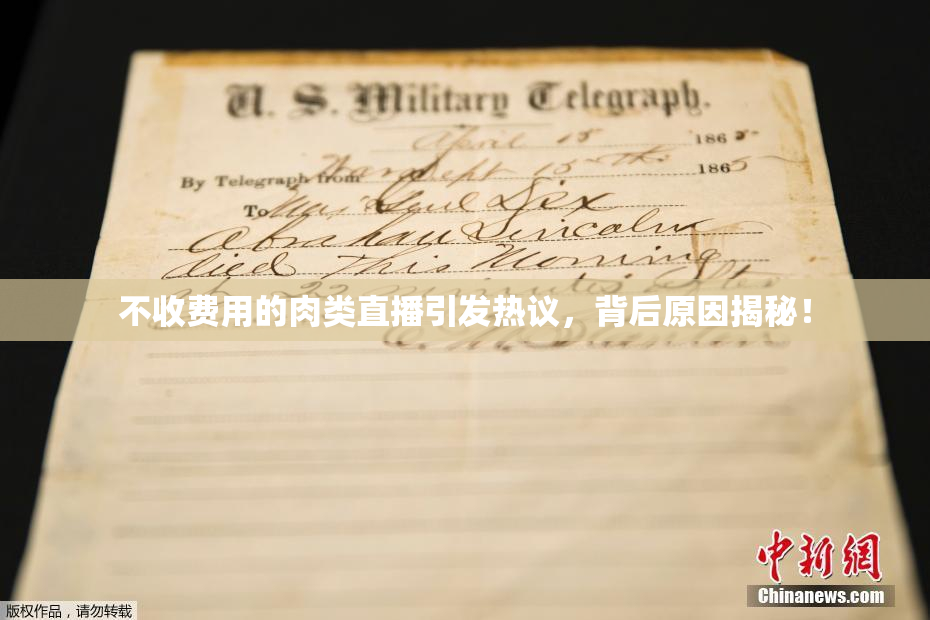 U. S. Military Telegraph.
April 15 1865
By Telegraph from War Dept 15th 1865
To Maj Genl Dix
Abraham Lincoln
died This Morning
at 22 minutes after
不收费用的肉类直播引发热议，背后原因揭秘！
中新网
Chinanews.com
版权作品，请勿转载